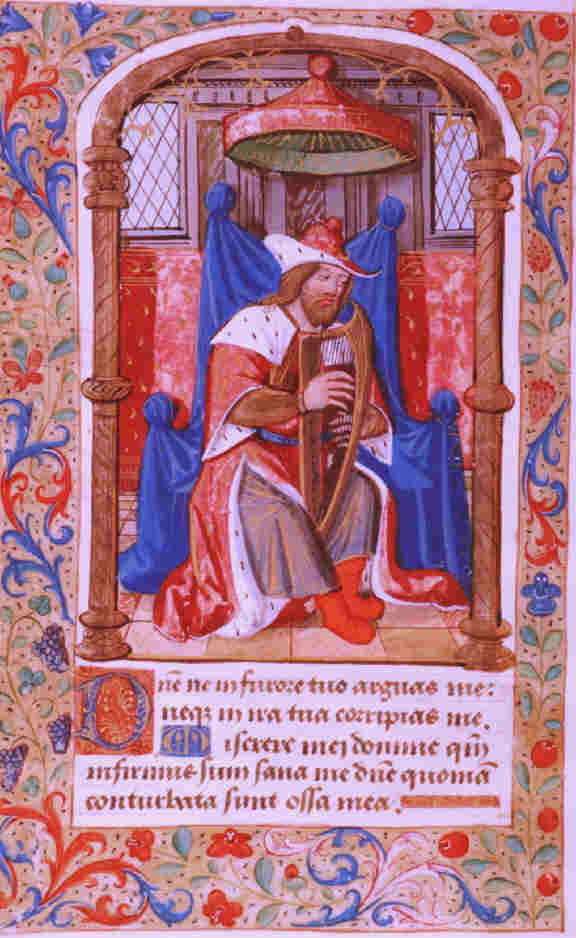 Dn̄e ne in furore tuo arguas me:
neqꝫ in ira tua corripias me.
Miserere mei domine qm̄
infirmus sum sana me dn̄e quoniā
conturbata sunt ossa mea.